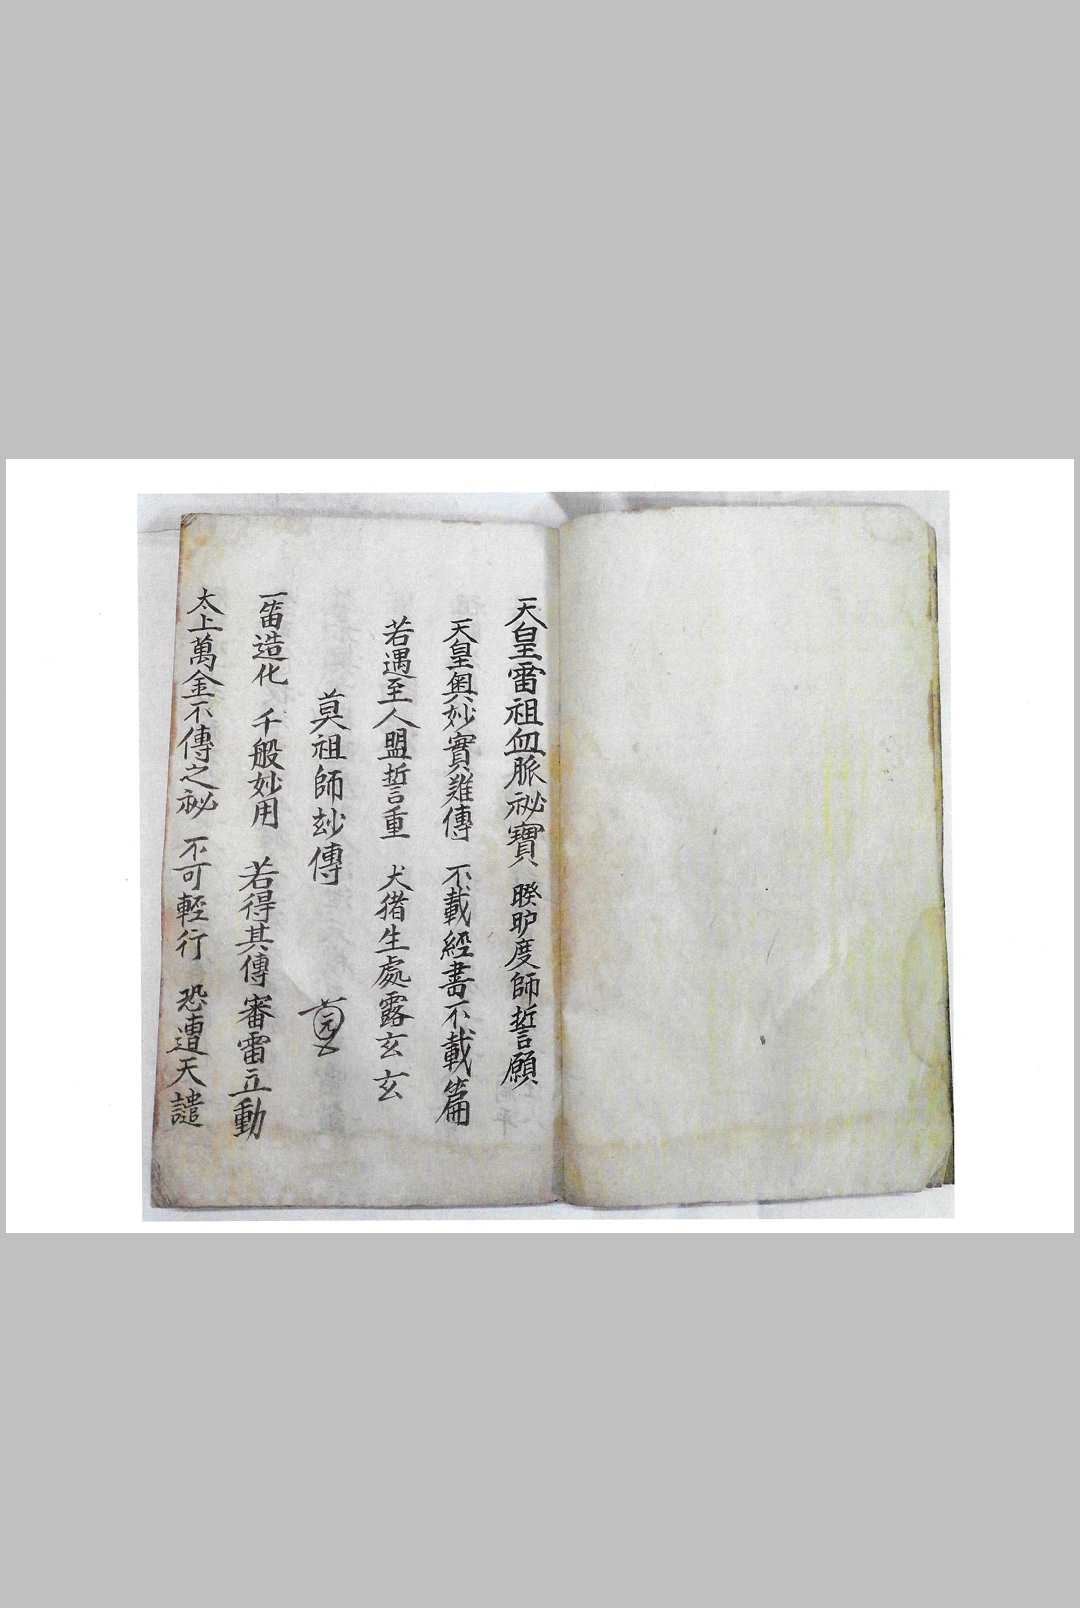 天皇雷祖血脈祕寶 睽𥅴度師誓願
天皇奥妙實難傳 不載經書不載篇
若遇至人盟誓重 犬猪生處露玄玄
莫祖師玅傳
一笛造化 千般妙用 若得其傳 審雷立動
太上萬金不傳之祕 不可輕行 恐遭天譴